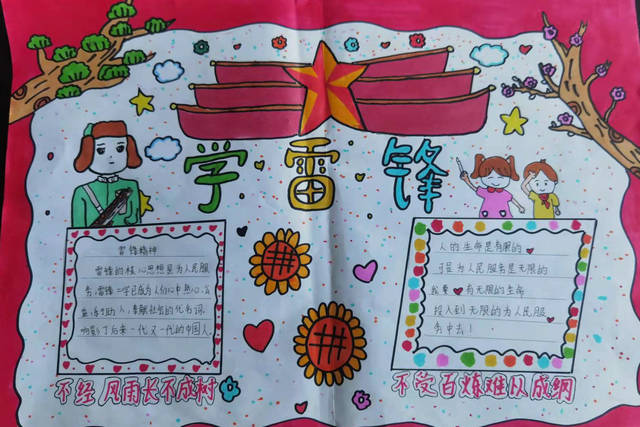 学雷锋
雷锋精神
雷锋的核心思想是为人民服
务,雷锋二字已成为人们心中热心公
益,乐于助人,奉献社会的代名词,
响了后来一代又一代的中国人,
人的生命是有限的
可是为人民服务是无限的
我要有限的生命
投入到无限的为人民服
务中去!
不经风雨长不成树
不受百炼难以成纲